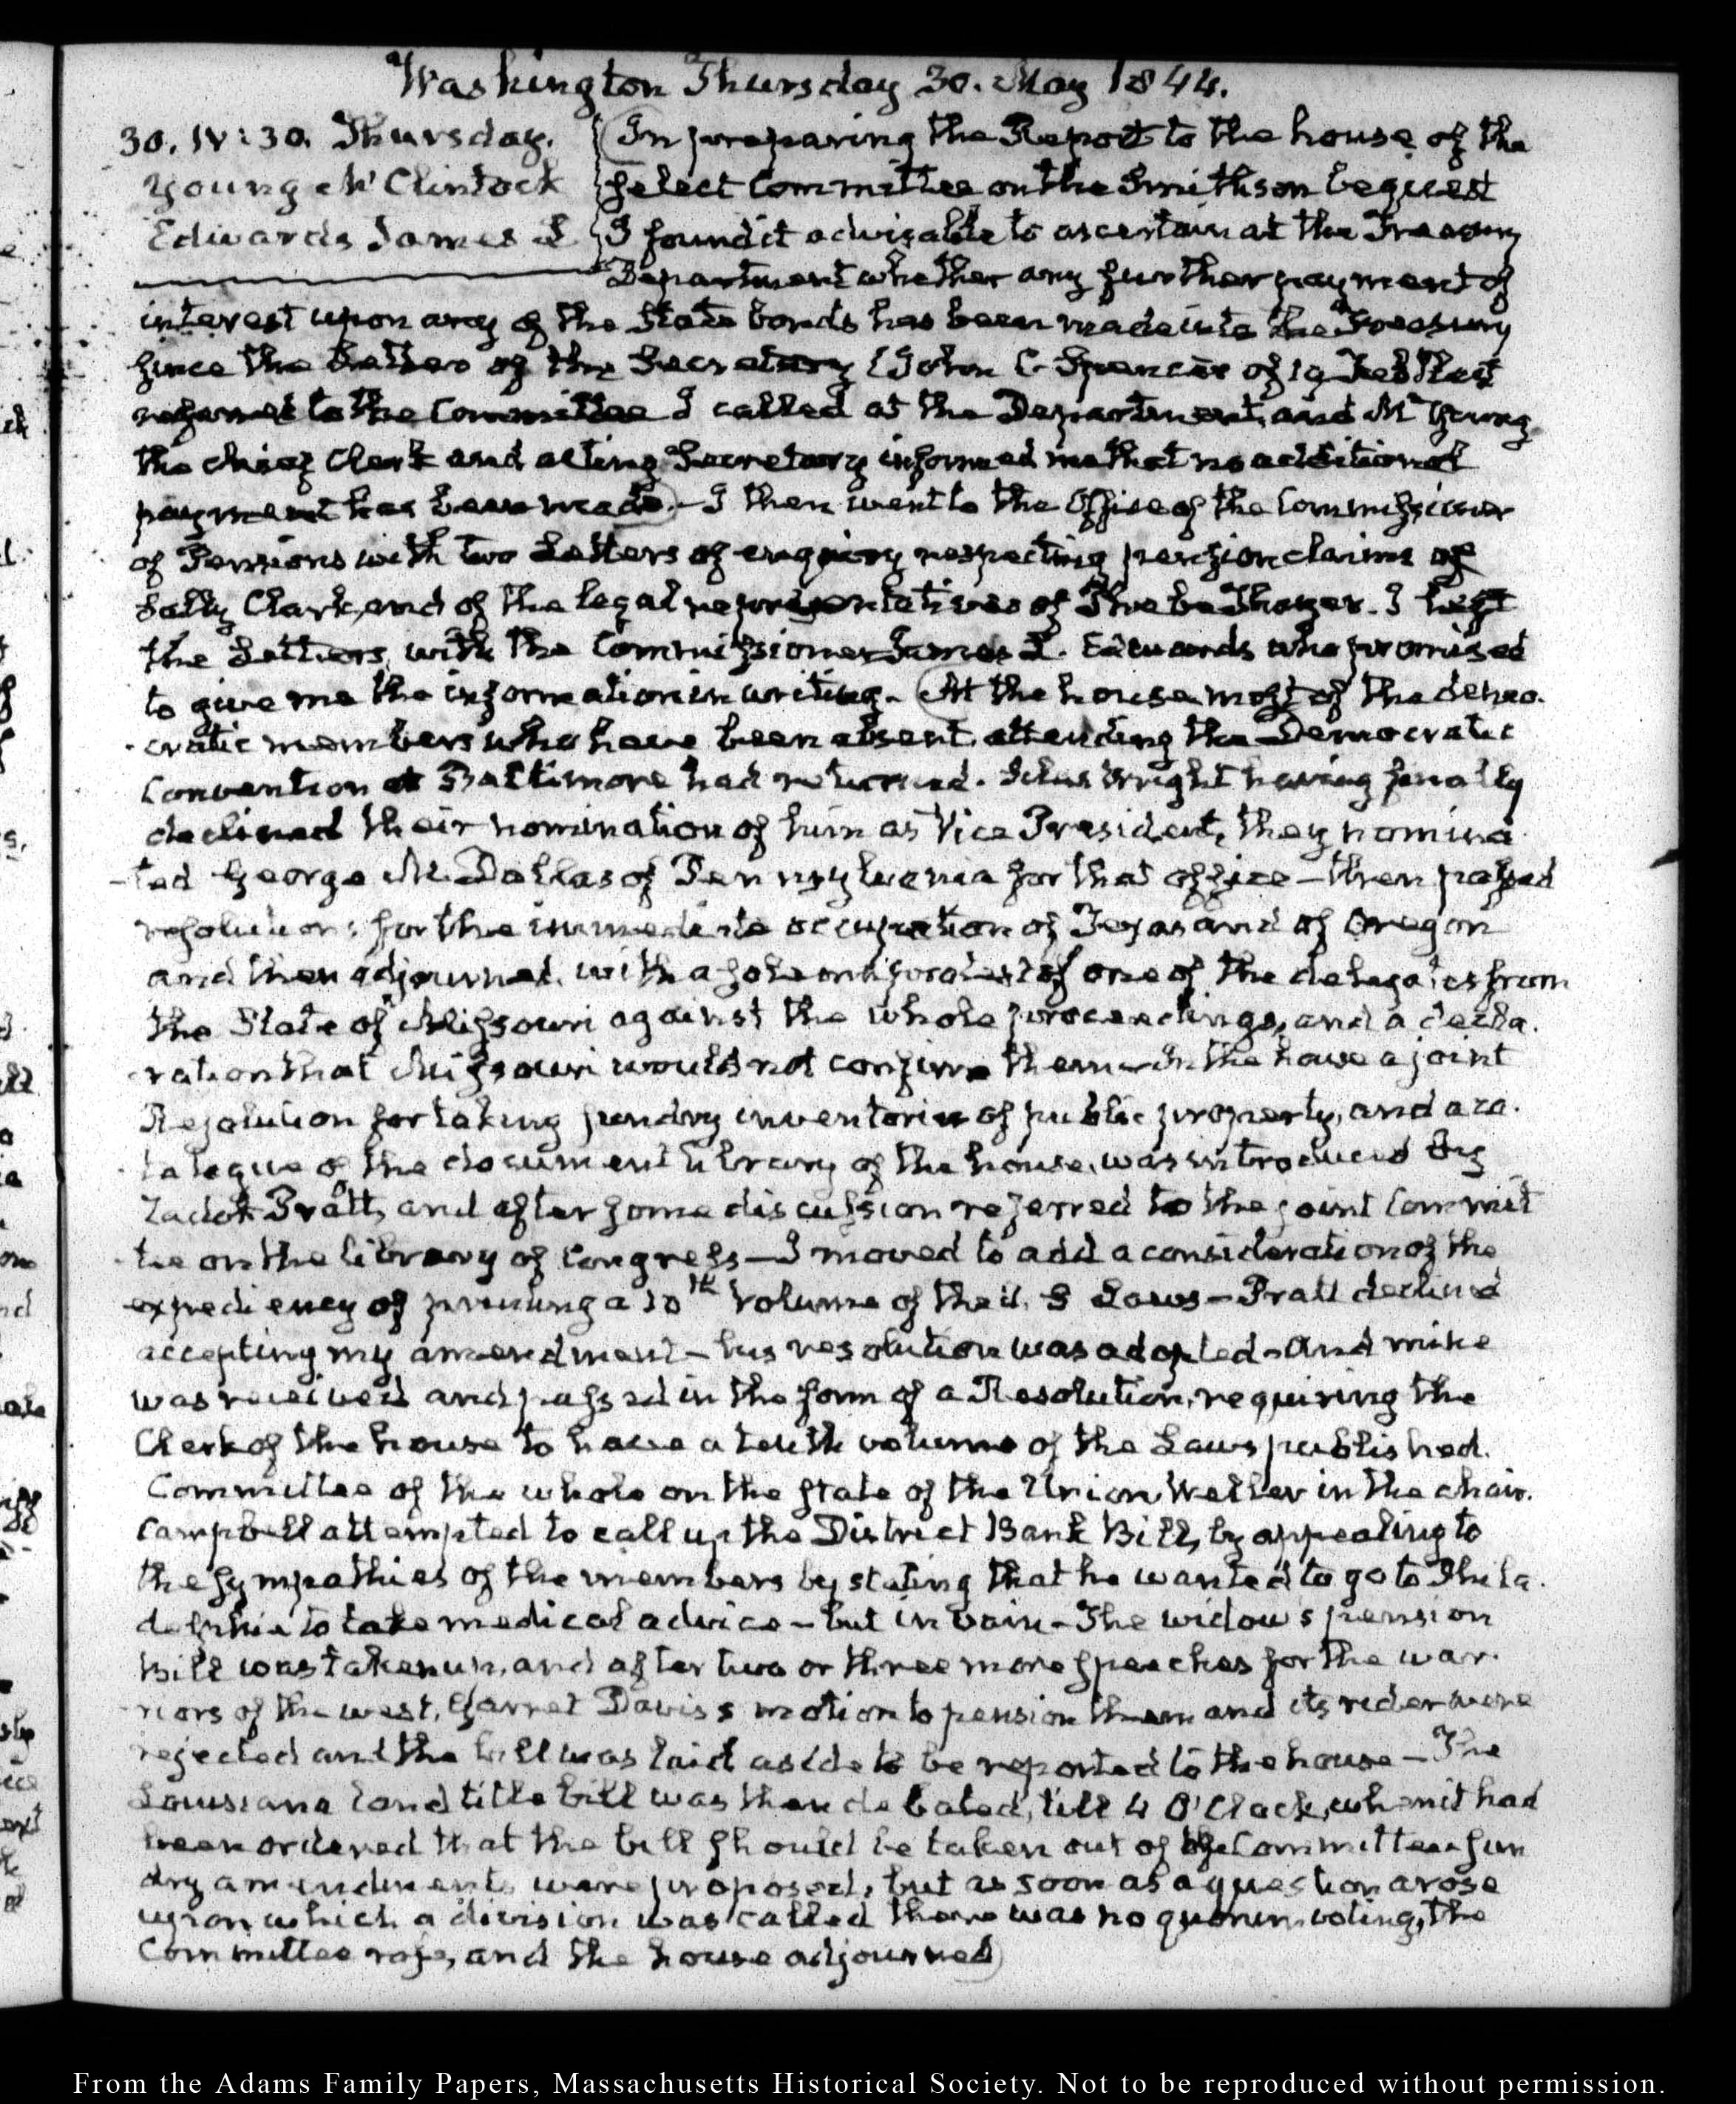 Washington Thursday 30. May 1844.
30. IV:30. Thursday.
Young McClintock
Edwards James L
In preparing the Report to the house of the
select Committee on the Smithson bequest
I found it advisable to ascertain at the Treasury
Department whether any further payment of
interest upon any of the State bonds has been made into the Treasury
since the Letter of the Secretary (John C. Spencer of 19 Feb last
referred to the Committee I called at the Department, and Mr Young
the chief Clerk and acting Secretary informed me that no additional
payment has been made.) - I then went to the Office of the Commissioner
of Pensions with two Letters of enquiry respecting pension claims of
Sally Clark, and of the legal representatives of Phebe Thayer. I left
the Letters with the Commissioner James L. Edwards who promised
to give me the information in writing. (At the house most of the demo-
-cratic members who have been absent attending the Democratic
Convention at Baltimore had returned. Silas Wright having finally
declined their nomination of him as Vice President, they nomina
-ted George M. Dallas of Pennsylvania for that office - then passed
resolutions for the immediate occupation of Texas and of Oregon
and then adjourned, with a solemn protest of one of the delegates from
the State of Missouri against the whole proceedings, and a decla-
-ration that Missouri would not confirm them - In the house a joint
Resolution for taking sundry inventories of public property, and a ca-
-talogue of the document library of the house, was introduced by
Zadok Pratt, and after some discussion referred to the joint Commit
-tee on the library of Congress - I moved to add a consideration of the
expediency of printing a 10th Volume of the U. S Laws - Pratt declined
accepting my amendment - his resolution was adopted - And mine
was received and passed in the form of a Resolution, requiring the
Clerk of the house to have a tenth volume of the Laws published.
Committee of the whole on the state of the Union Weller in the chair.
Campbell attempted to call up the District Bank Bill, by appealing to
the sympathies of the members by stating that he wanted to go to Phila-
delphia to take medical advice - but in vain - The widow's pension
Bill was taken up, and after two or three more speeches for the war-
-riors of the west, Garret Davis's motion to pension them and its rider were
rejected and the bill was laid aside to be reported to the house - The
Louisiana land title bill was then debated, till 4 O'Clock, when it had
been ordered that the bill should be taken out of the Committee - Sun
dry amendments were proposed, but as soon as a question arose
upon which a division was called there was no quorum voting, the
Committee rose, and the house adjourned)
From the Adams Family Papers, Massachusetts Historical Society. Not to be reproduced without permission.